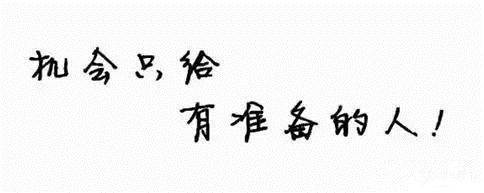 机会只给
有准备的人!